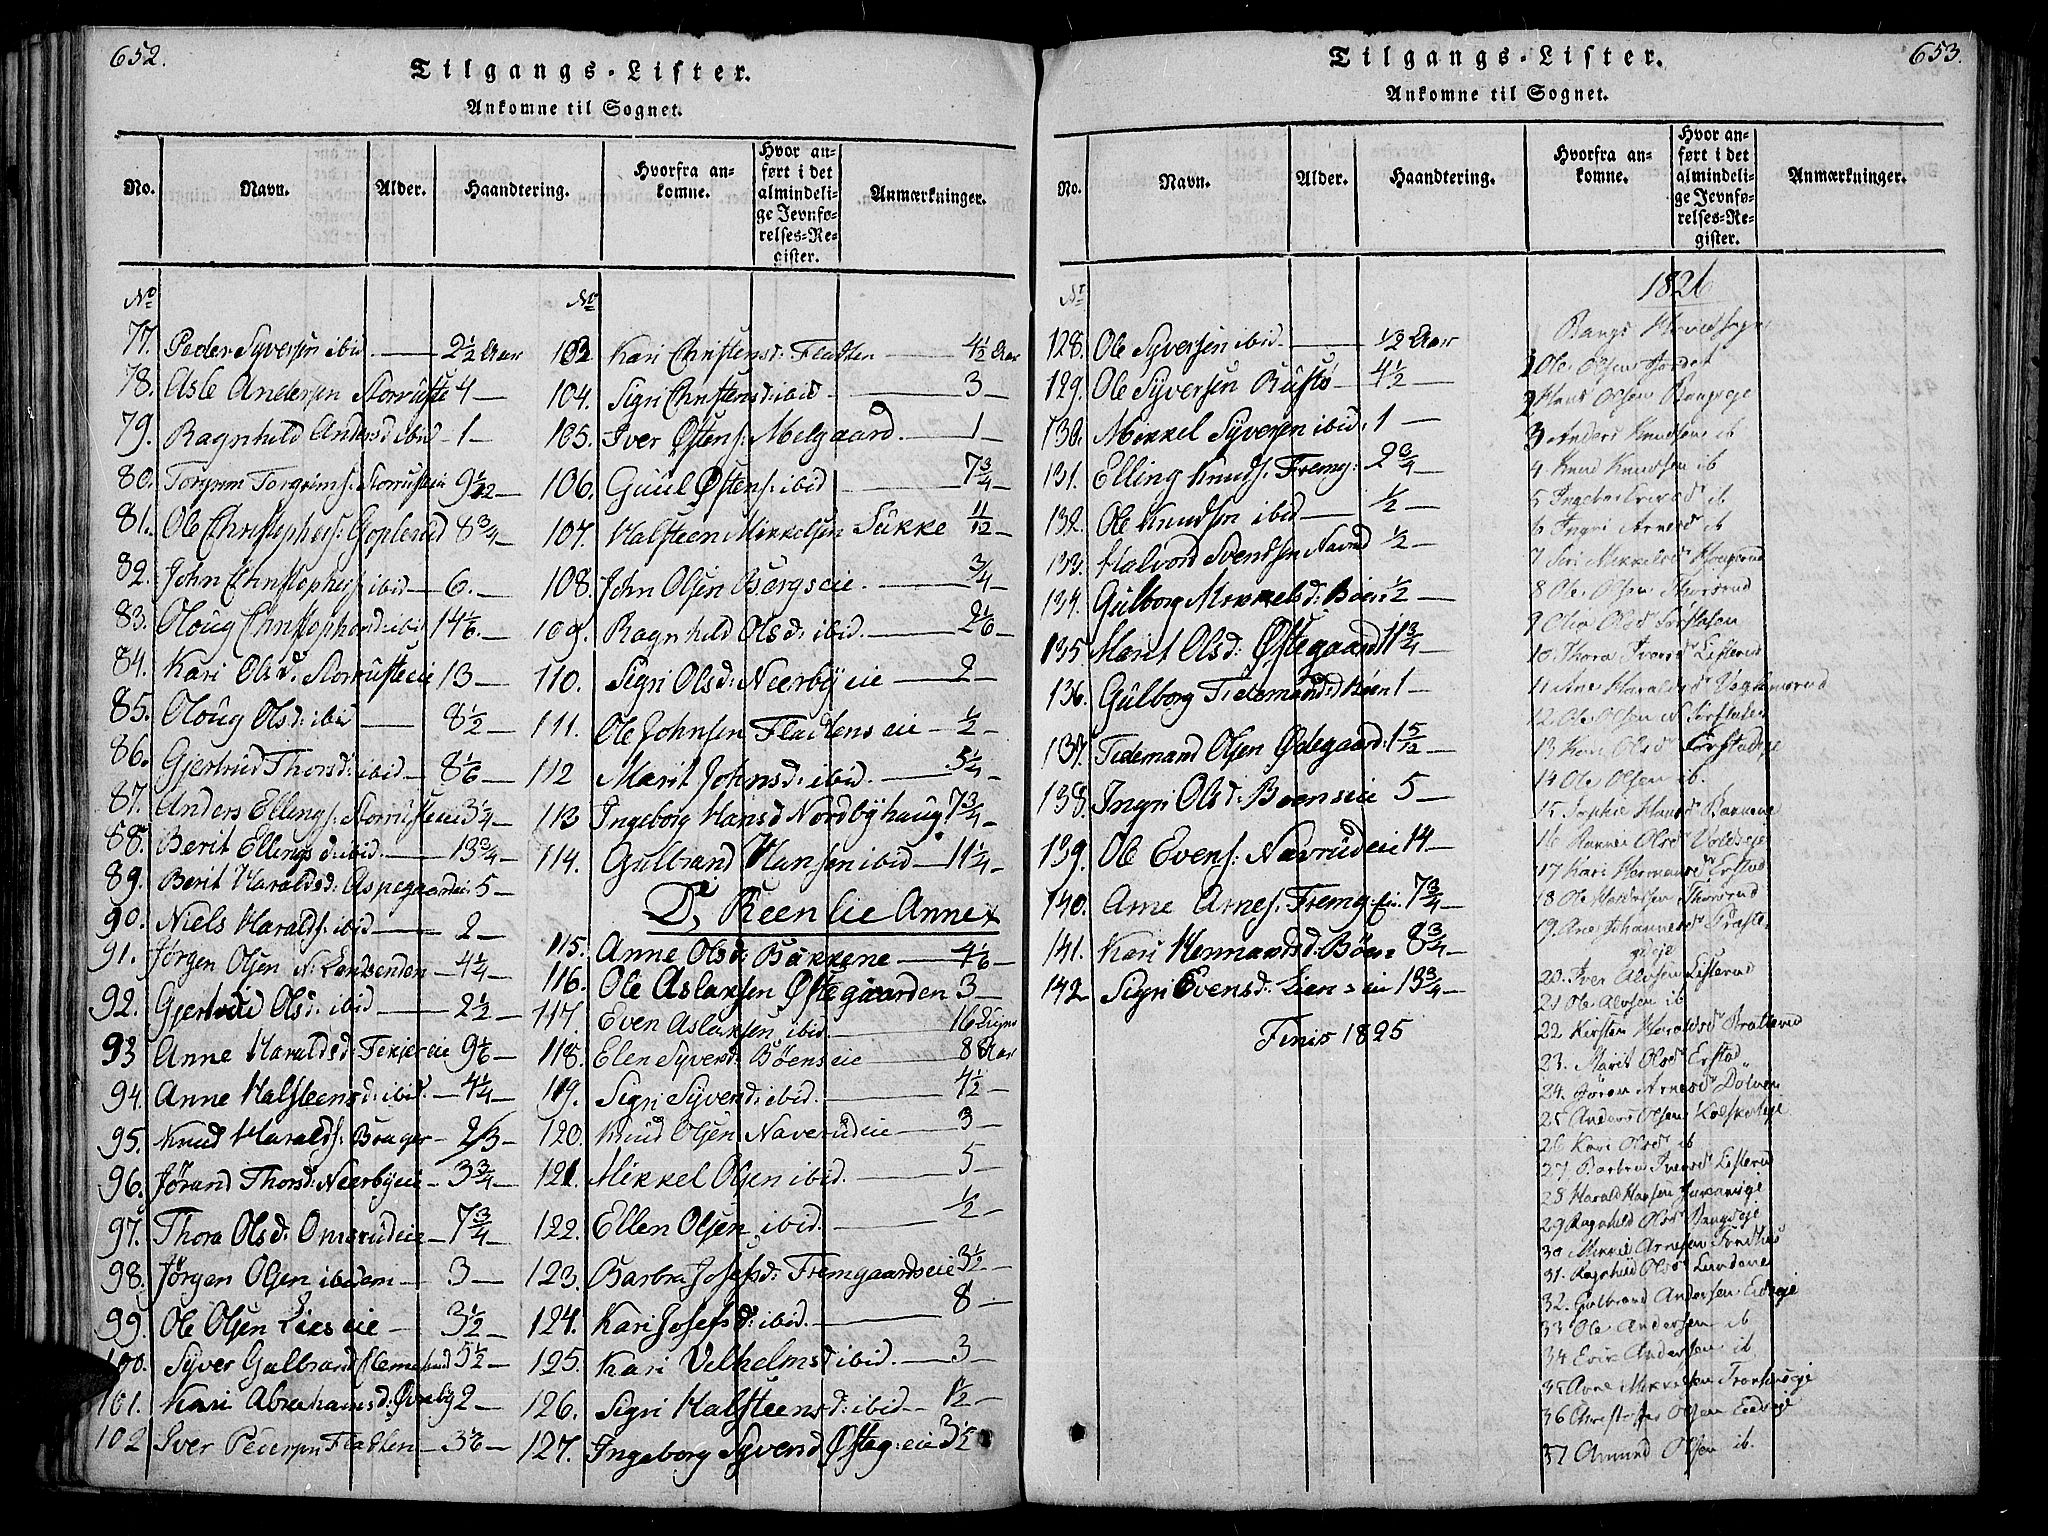 652.
Tilgangs-Lister.
Ankomne til Sognet.
No.
Navn.
Alder.
Haandtering.
Hvorfra an-
komne.
Hvor an-
ført i det
almindeli-
ge Jevnfø-
relses-Re-
gister.
Anmærkninger.
No
77. Peder Syversen ibid. 2½ Aar
78. Asle Andersen Storruste 4
79. Ragnhild Andersd ibid 1
80. Torgrim Torgrims: Storrusteie
81. Ole Christophers: Goplerud 8¾
82. John Christophers ibid 6.
83. Oloug Christophersd: ibid 14⅙
84. Kari Olsd: Storrusteeie 13
85. Oloug Olsd: ibid 8½
86. Gjertrud Thorsd: ibid. 8⅙
87. Anders Ellings: Storrusteeie 3¼
88. Berit Ellingsd: ibid. 13¾
89. Berit Haraldsd: Aspegaardeie 5
90. Niels Haralds: ibid 2
91. Jørgen Olsen N: 4¼
92. Gjertrud Olsd: ibid 2½
93 Anne Haraldsd: 9⅙
94. Anne Halsteensd: ibid. 4¼
95. Knud Haralds: Brager 2/3
96. Jørand Thorsd: Neerbyeie 3¾
97. Thora Olsd: Omsrudeie 7¾
98. Jørgen Olsen ibidem 3
99. Ole Olsen Lieseie 3½
100. Syver Gulbrands 5½
101. Kari Abrahamsd: Øvreby 2
102 Iver Pedersen Fladten 3⅙
Nr
103 Kari Christensd: Fladten 4½ Aar
104. Sigri Christensd: ibid 3
105. Iver Østens: Melgaard 1
106. Guul Østens: ibid 7¾
107. Halsteen Mikkelsen Sukke 11/12
108. John Olsen Bergseie. ¾
109. Ragnhild Olsd: ibid. 2⅙
110. Sigri Olsd: Neerbyeie 2
111. Ole Johnsen Fladtenseie ½
112 Marit Johnsd: ibid. 5¼
113 Ingeborg Hansd Nordbyhaug 7¾
114. Gulbrand Hansen ibid 11¼
Do, Reenlie Annex
115. Anne Olsd: Bakkene 4⅙
116. Ole Aslaksen Østegaarden 3
117. Even Aslaksen ibid. 16
118. Elen Syversd: Bøenseie 8 Aar
119. Sigri Syversd: ibid. 4½
120. Knud Olsen Naverudeie 3
121. Mikkel Olsen ibid. 5
122. Ellen Olsen ibid. ½
123. Barbra Josefsd: Fremgaardseie 3½
124. Kari Josefsd: ibid. 8
125. Kari Velhelmsd ibid. 3
126. Sigri Halsteensd: ibid 1½
127. Ingeborg Syversd Østeg:eie 3½
653.
Tilgangs-Lister.
Ankomne til Sognet.
No.
Navn.
Alder.
Haandtering.
Hvorfra an-
komne.
Hvor an-
ført i det
almindeli-
ge Jevnfø-
relses-Re-
gister.
Anmærkninger.
Nr
128. Ole Syversen ibid. ½ Aar
129. Ole Syversen Rustø 4½
130. Mikkel Syversen ibid: 1
131. Elling Knuds: Fremg: 2¾
132. Ole Knudsen ibid ½
133. Halvord Svendsen Navrud ½
134. Gulborg Mikkelsd: Bøen ½
135 Marit Olsd: Østegaard 11¾
136. Gulborg Tidemandsd Bøen 1
137. Tidemand Olsen Ødegaard: 1 5/12
138. Ingri Olsd: Boenseie 5
139. Ole Evens: Navrudeie 14
140. Arne Arnes: Fremg:ei. 7¾
141. Kari Hermandsd: Bøen 8¾
142 Sigri Evensd: 13¾
Finis 1825
1826
Bangs Hovedsogn
1 Ole Olsen Hordet
2 Hans Olsen Bangseje
3 Anders Knudsen ib
4 Knud Knudsen ib
5 Ingebor ib
6 Ingri Arnesd ib
7 Siri Mikkelsd
8 Ole Olsen Thorsrud
9 Olia Olsd
10. Thora Iversd Listerud
11 Ane Haraldsd
12. Ole Olsen
13. Kari Olsd
14 Ole Olsen ib.
15. Sophie Hansd
16 Olsd Voldseje
17 Kari Hermansd Erstad
18 Ole Thorsrud
19. Ane Johannesd
20. Iver Alvsen Listerud
21 Ole Alvsen ib
22 Kirsten Haraldsd Bratterud
23. Marit Olsd Erstad
24. Jøran Arnesd Dölven
25 Anders Olsen
26 Kari Olsd ib
27 Barbra Iversd Listerud
28 Harald Hansen
29 Ragnhild Olsd Bangseje
30 Mikkel Arnesen
31. Ragnhild Olsd Lundene
32. Gulbrand Andersen Eidseje
33 Ole Andersen ib
34 Erik Andersen ib
35 Arne Mikkelsen
36 Olsen Eidseje
37 Amund Olsen ib.